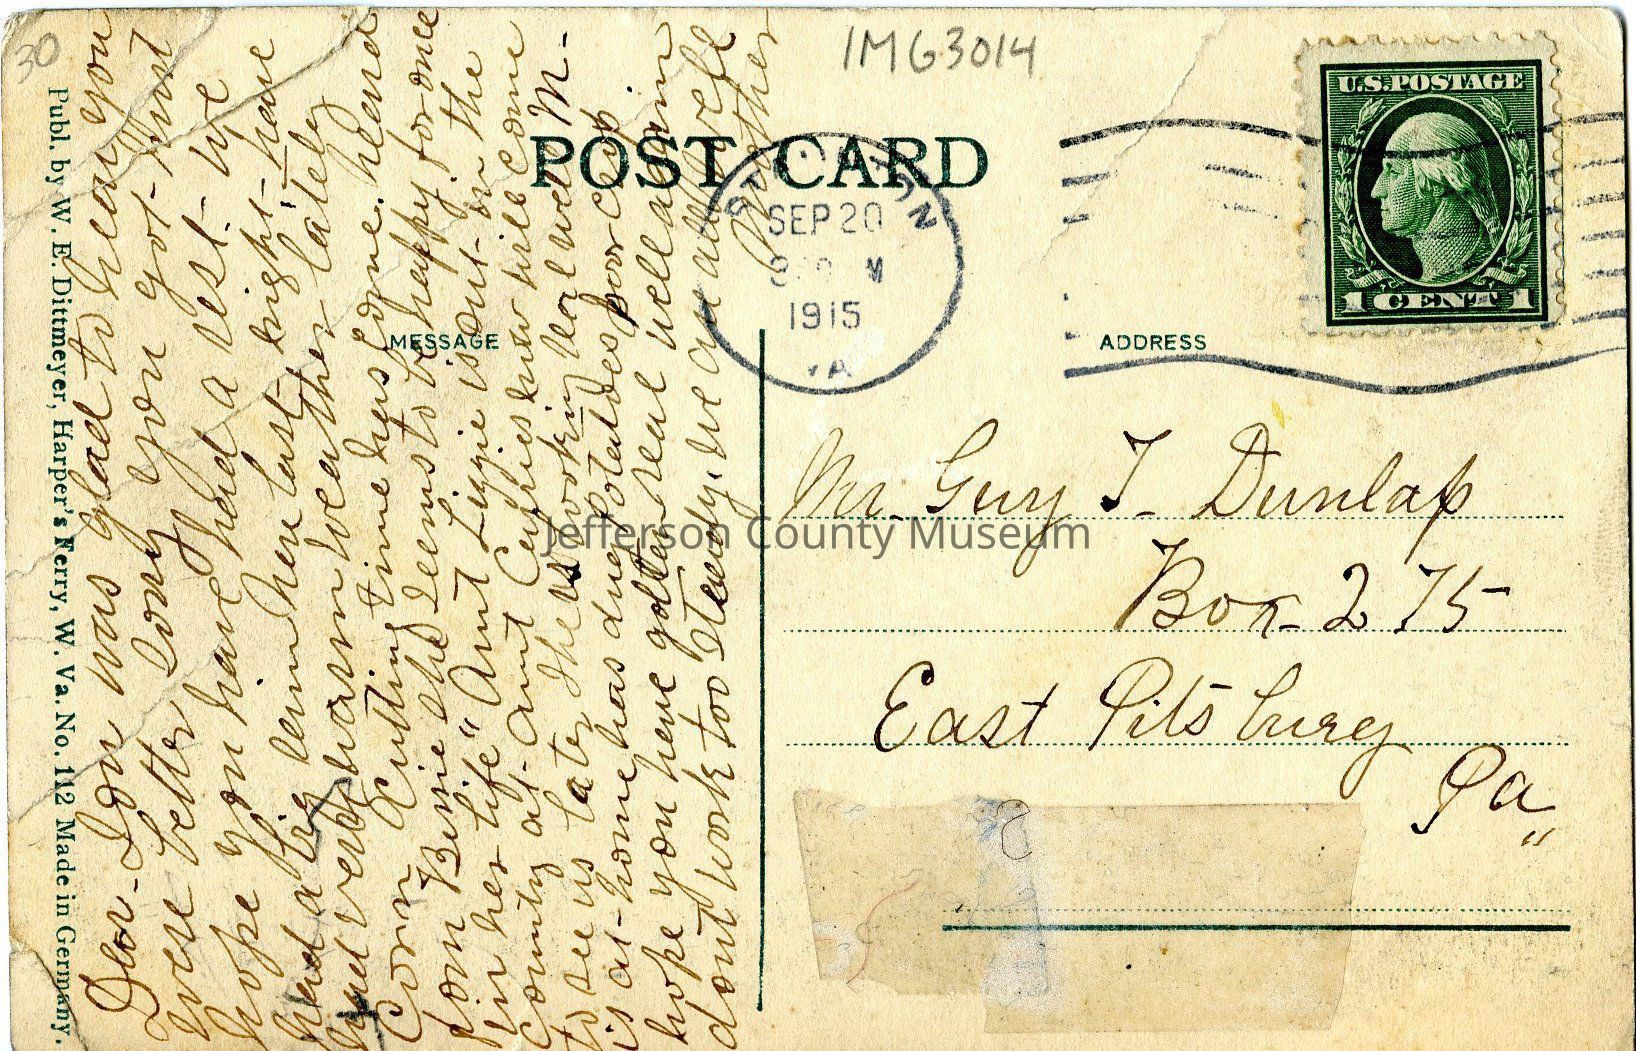 30
IMG3014
POST CARD
U.S. POSTAGE
1 CENT 1
SEP 20
M
1915
VA
MESSAGE
ADDRESS
Dear Son was glad to hear you
were better sorry you got hurt
hope you have had a rest. We
had a big lemn here last night. have
had very warm weather lately
Corn cutting time has come. heard
from Birdie she seems to be happy for once
in her life" Aunt Lizzie is out in the
Country at Aunt Ceffies but will come
to see us later. She is looking well M-
is at-home has dug potatoes poor crop
hope you have gotten real well again
dont work too steady. We are all well
Mother
Mr. Guy T. Dunlap
Box- 275
East Pitsburg
Pa"
Jefferson County Museum
Publ. by W. E. Dittmeyer, Harper's Ferry, W. Va. No. 112 Made in Germany.